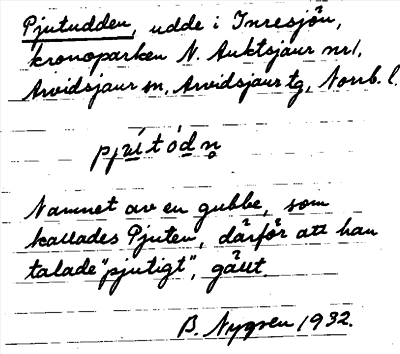 Pjutudden, udde i Inresjön,
kronoparken N. Auktsjaur nr 1,
Arvidsjaur sn, Arvidsjaur tg, Norrb. l.
pjʉ́tód̲n̥
Namnet av en gubbe, som
kallades Pjuten, därför att han
talade "pjutigt", gällt.
B. Nygren 1932.